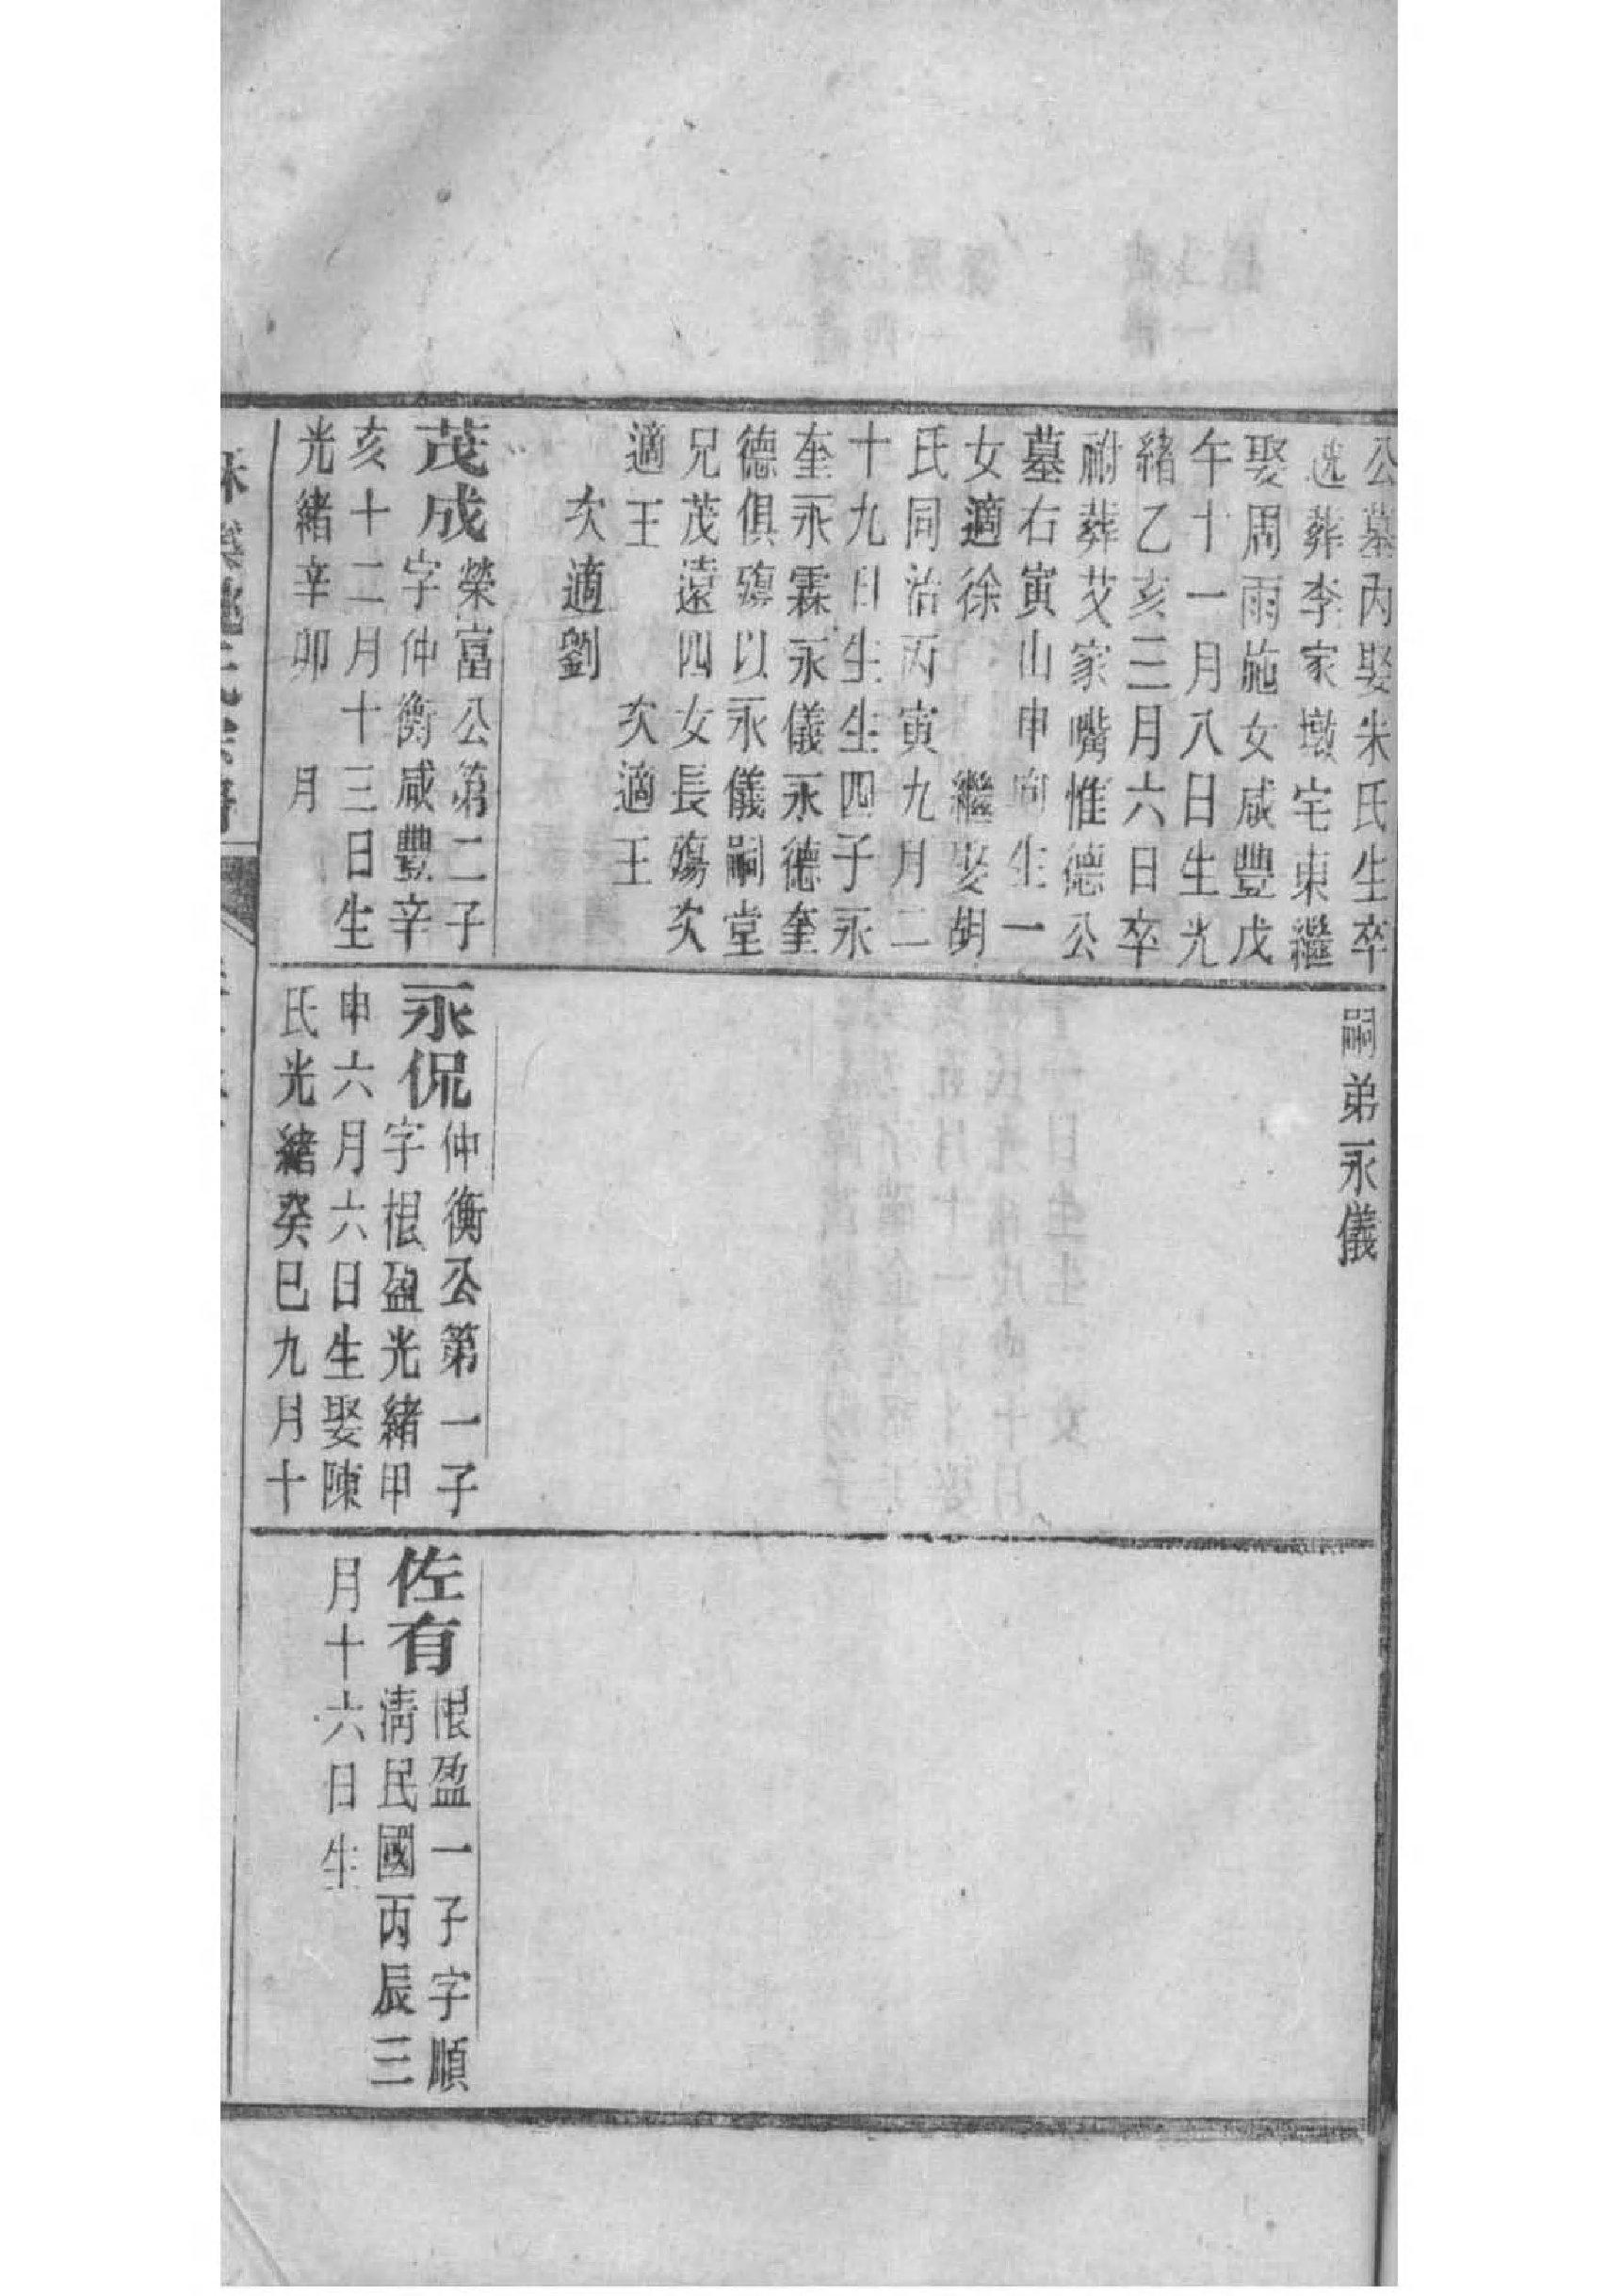 公墓內娶朱氏生卒
迯葬李家墩宅東繼
娶周雨施女咸豐戊
午十一月八日生光
緒乙亥三月六日卒
祔葬艾家嘴惟德公
墓右寅山申向生一
女適徐 繼娶胡
氏同治丙寅九月二
十九日生生四子永
奎永霖永儀永德奎
德俱殤以永儀嗣堂
兄茂遠四女長殤次
適王 次適王
次適劉
茂成
榮富公第二子
字仲衡咸豐辛
亥十二月十三日生
光緒辛卯 月
嗣弟永儀
永侃
仲衡公第一子
字根盈光緒甲
申六月六日生娶陳
氏光緒癸巳九月十
佐有
根盈一子字順
清民國丙辰三
月十六日生